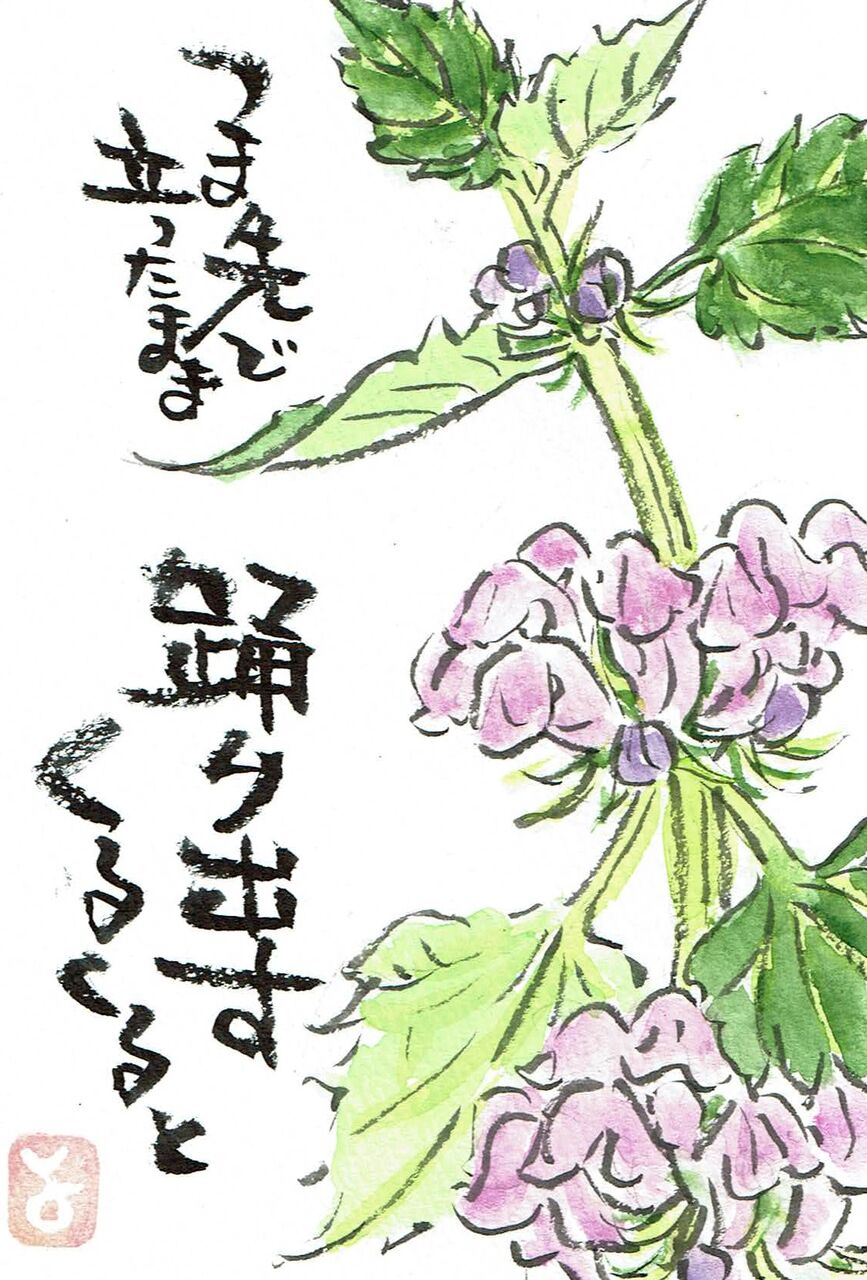 つま先で
立ったまま
踊り出す
くるくると